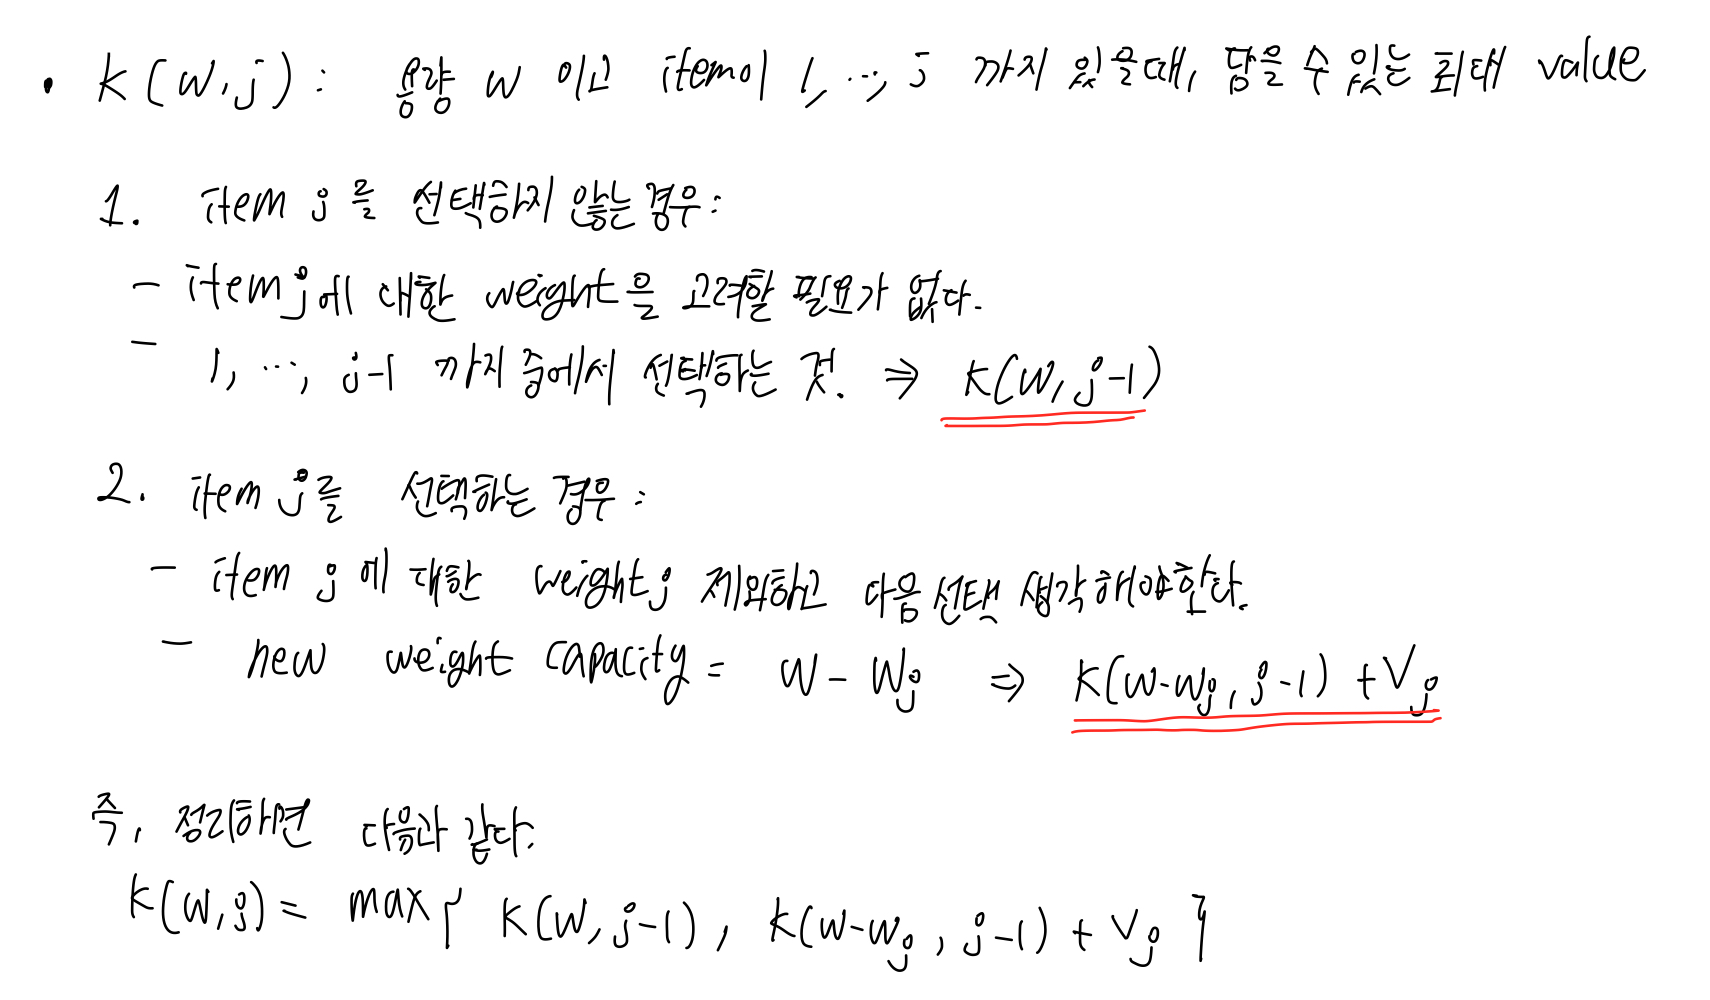 • K(W,j) : 용량 W 이고 item이 1, ..., j 까지 있을때, 담을 수 있는 최대 value
1. item j를 선택하지 않는 경우:
- item j에 대한 weight을 고려할 필요가 없다.
- 1, ..., j-1 까지 중에서 선택하는 것. ⇒ K(W, j-1)
2. item j를 선택하는 경우 :
- item j에 대한 weight j 제외하고 다음 선택 생각해야한다.
- new weight capacity = W - Wj ⇒ K(W-Wj, j-1) + Vj
즉, 정리하면 다음과 같다.
K(W,j) = max{ K(W, j-1), K(W-Wj, j-1) + Vj }